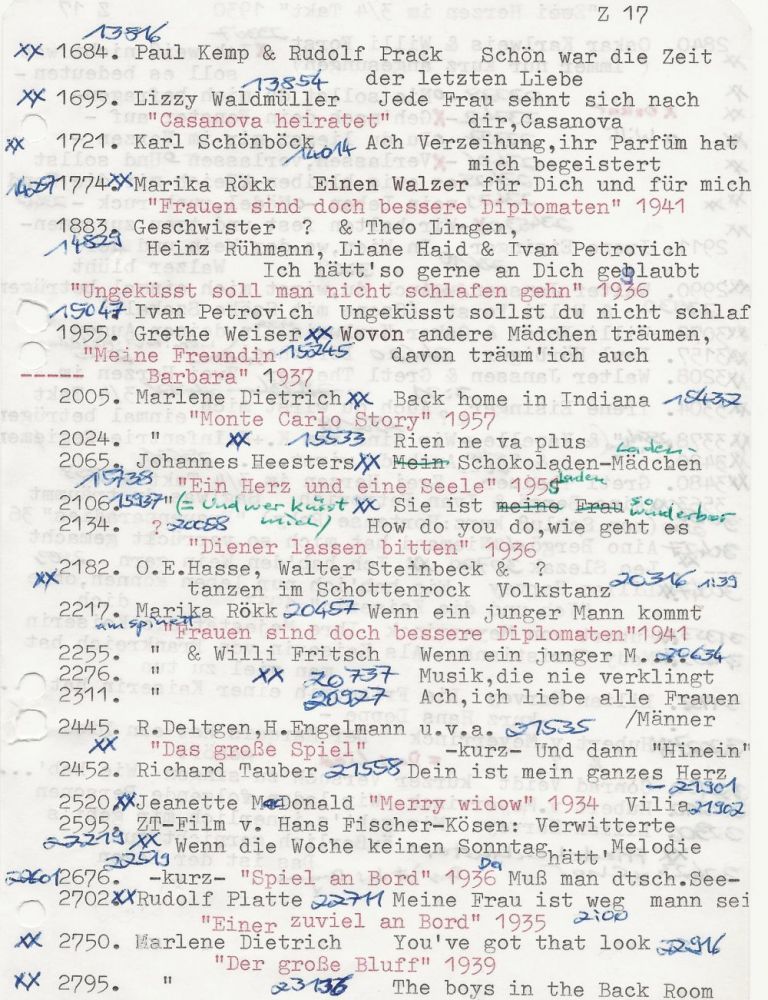 Z 17
13816
xx 1684. Paul Kemp & Rudolf Prack Schön war die Zeit
13854 der letzten Liebe
xx 1695. Lizzy Waldmüller Jede Frau sehnt sich nach
"Casanova heiratet" dir,Casanova
xx 1721. Karl Schönböck 14014 Ach Verzeihung,ihr Parfüm hat
mich begeistert
1774. xx Marika Rökk Einen Walzer für Dich und für mich
"Frauen sind doch bessere Diplomaten" 1941
1883. Geschwister ? & Theo Lingen,
14829 Heinz Rühmann, Liane Haid & Ivan Petrovich
Ich hätt'so gerne an Dich geglaubt
"Ungeküsst soll man nicht schlafen gehn" 1936
15047 Ivan Petrovich Ungeküsst sollst du nicht schlaf
1955. Grethe Weiser xx Wovon andere Mädchen träumen,
"Meine Freundin 15245 davon träum'ich auch
----- Barbara" 1937
2005. Marlene Dietrich xx Back home in Indiana 15432
"Monte Carlo Story" 1957
2024. " xx - 15533 Rien ne va plus
Laden-
2065. Johannes Heesters xx Mein Schokoladen-Mädchen
15738 "Ein Herz und eine Seele" 1955 laden
2106. 15937 " (= Und wer küsst mich) xx Sie ist meine Frau so wunderbar
2134. ? 20088 How do you do,wie geht es
"Diener lassen bitten" 1936
xx 2182. O.E.Hasse, Walter Steinbeck & ? 20316 1:39
tanzen im Schottenrock Volkstanz
2217. Marika Rökk 20457 Wenn ein junger Mann kommt
am spinett "Frauen sind doch bessere Diplomaten"1941
2255. " & Willi Fritsch Wenn ein junger M... 20634
2276. " xx 20737 Musik,die nie verklingt
2311. " 20927 Ach,ich liebe alle Frauen
/Männer
2445. R.Deltgen,H.Engelmann u.v.a. 21535
xx "Das große Spiel" -kurz- Und dann "Hinein"
2452. Richard Tauber 21558 Dein ist mein ganzes Herz
- 21901
2520 xx Jeanette McDonald "Merry widow" 1934 Vilia 21902
2595. ZT-Film v. Hans Fischer-Kösen: Verwitterte
22219 xx Wenn die Woche keinen Sonntag hätt' Melodie
22519
22601 2676. -kurz- "Spiel an Bord" 1936 Da Muß man dtsch.See-
2702 xx Rudolf Platte 22711 Meine Frau ist weg mann sei
"Einer zuviel an Bord" 1935 2:00
xx 2750. Marlene Dietrich You've got that look 22916
"Der große Bluff" 1939
xx 2795. " 23136 The boys in the Back Room